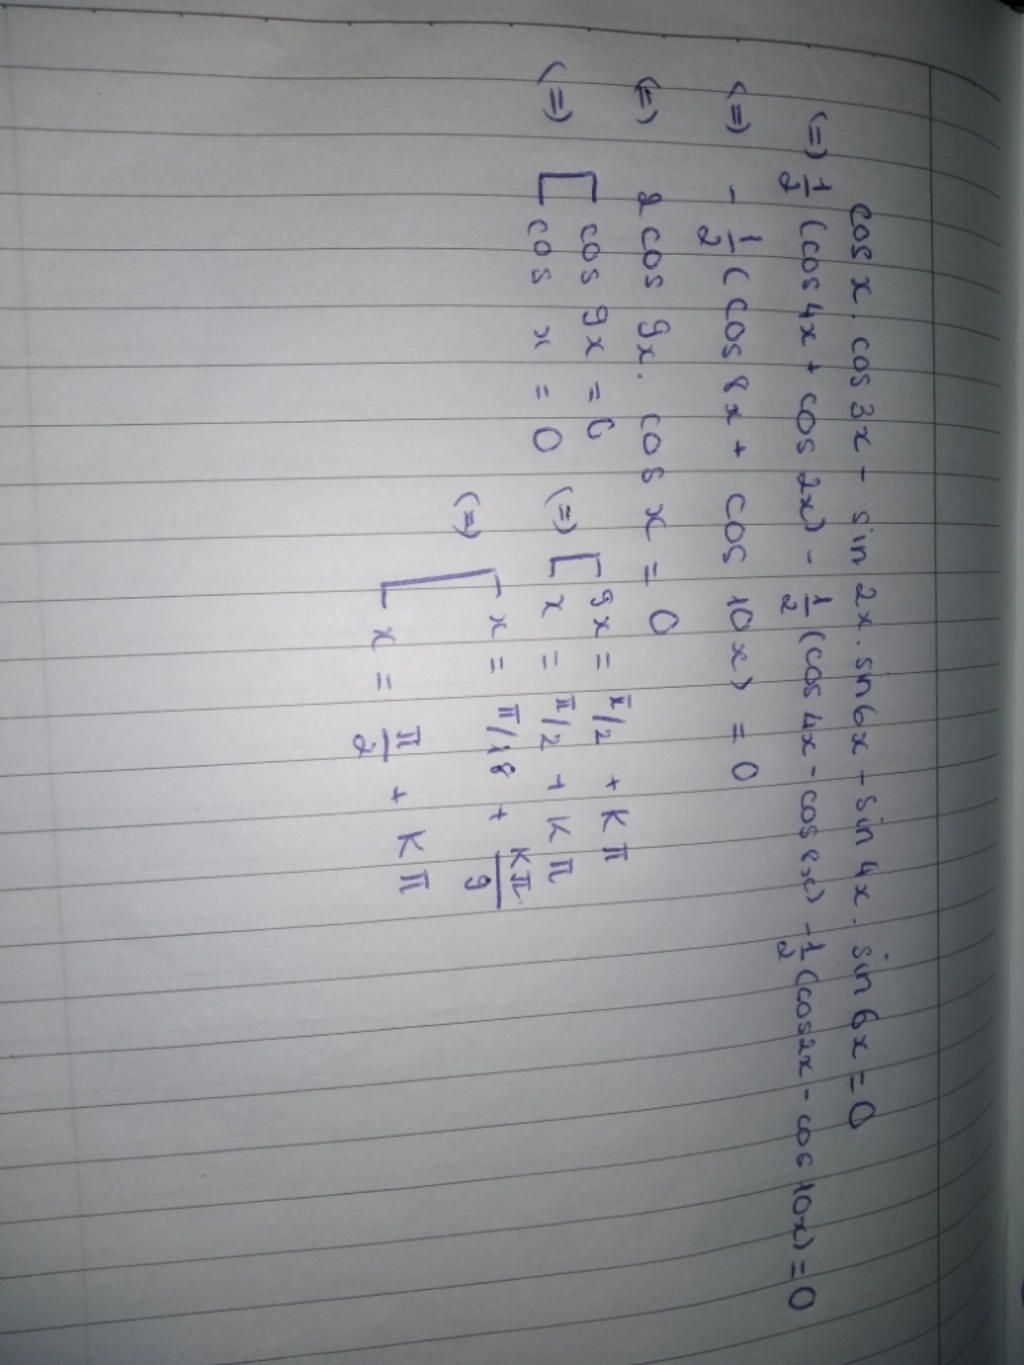 cos x. cos 3x - sin 2x. sin 6x - sin 4x. sin 6x = 0
(=) 1/2 (cos 4x + cos 2x) - 1/2 (cos 4x - cos 8x) - 1/2 (cos 2x - cos 10x) = 0
(=) - 1/2 (cos 8x + cos 10x) = 0
(=) 2 cos 9x. cos x = 0
(=) [ cos 9x = 0 (=) [ 9x = π/2 + Kπ
cos x = 0 x = π/2 + Kπ
(=) [ x = π/18 + Kπ/9
x = π/2 + Kπ